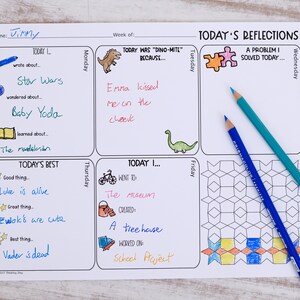 Jimmy
Week of:
TODAY'S REFLECTIONS
TODAY I...
Monday
wrote about...
Star Wars
wondered about...
Baby Yoda
learned about...
The
TODAY WAS "DINO-MITE"
BECAUSE...
Tuesday
Emma kissed
me on the
cheek
A PROBLEM I
SOLVED TODAY...
Wednesday
TODAY'S BEST
Thursday
Good thing...
Luke is alive
Great thing...
Ewoks are cute
Best thing...
Vader is dead
TODAY I...
Friday
WENT TO:
The museum
CREATED:
A treehouse
WORKED ON:
School Project